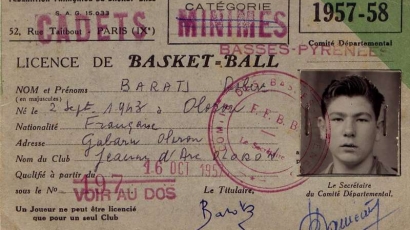 S.A.G. 15.033
CADETS
CATÉGORIE
MINIMES
1957-58
52, Rue Taitbout - PARIS (IXᵉ)
BASSES-PYRÉNÉES
Comité Départemental
LICENCE DE BASKET-BALL
NOM et Prénoms BARATS
(en majuscules)
Né le 2 Sept 1943 à Oloron
Nationalité Française
Adresse Gabarn Oloron
Nom du Club Jeanne d'Arc OLORON
Qualifié à partir du 16 OCT 1957
sous le No 197
VOIR AU DOS
Un Joueur ne peut être licencié
que pour un seul Club
Le Titulaire,
Barats
F.F.B.B.
Le Secrétaire
Le Secrétaire
du Comité Départemental.